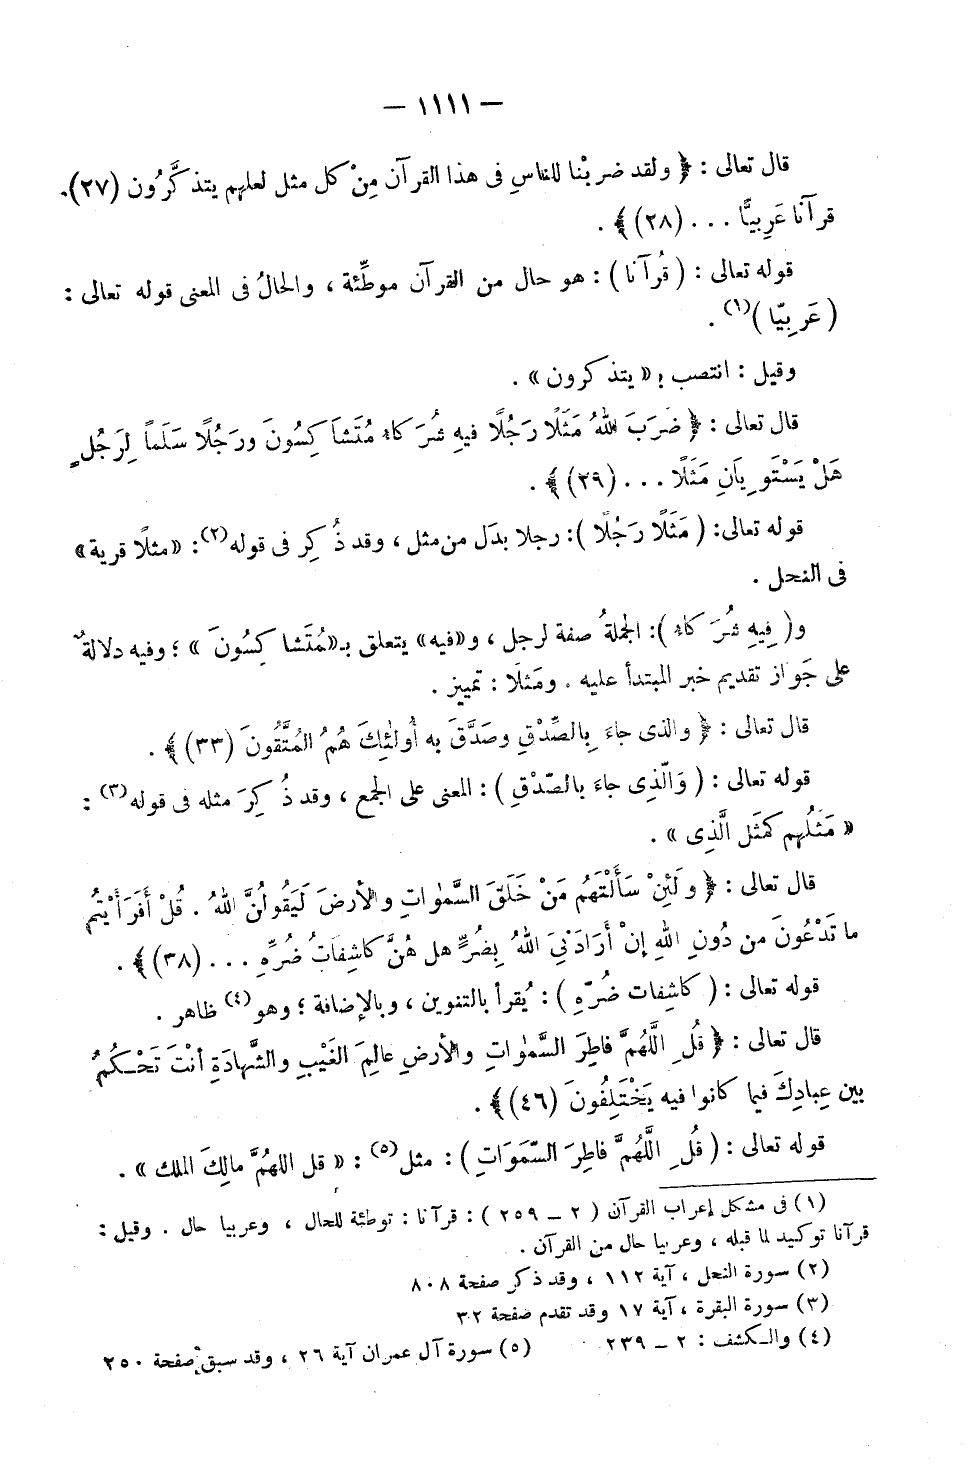 — ١١١١ —
قال تعالى : ﴿ ولقد ضربْنا للناسِ فى هذا القرآن مِنْ كل مثل لعلهم يتذكَّرُون (٢٧).
قرآنا عَرِبيًّا . . . (٢٨)﴾ .
قوله تعالى : ( قُرآنا ) : هو حال من القرآن موطِّئة ، والحالُ فى المعنى قوله تعالى :
( عَرِبيّا )(١) .
وقيل : انتصب بـ « يتذكرون » .
قال تعالى : ﴿ ضرَبَ اللهُ مَثَلًا رَجُلًا فيهِ شُرَكاءُ مُتَشاكِسُونَ ورَجُلًا سَلَماً لِرَجُلٍ
هَلْ يَسْتَوِيَانِ مَثَلًا . . . (٢٩)﴾ .
قوله تعالى: ( مَثَلًا رَجُلًا ): رجلا بدَل من مثل ، وقد ذُكِر فى قوله(٢): « مثلًا قرية»
فى النحل .
و( فِيهِ شُرَكاءُ ): الجملةُ صفة لرجل ، و«فيه» يتعلق بـ«مُتَشاكِسُونَ » ؛ وفيه دلالةٌ
على جَواز تقديم خبر المبتدأ عليه . ومَثلًا : تمييز .
قال تعالى : ﴿ والذى جاءَ بِالصِّدْقِ وصَدَّقَ به أُولٰئِكَ هُمُ المُتَّقُونَ (٣٣)﴾ .
قوله تعالى : ( وَالّذِى جاءَ بالصّدْقِ ) : المعنى على الجمع ، وقد ذُكِرَ مثله فى قوله(٣) :
« مَثَلُهم كمَثَل الَّذِى » .
قال تعالى : ﴿ ولَئِنْ سَأَلْتَهُم مَنْ خَلَقَ السَّمٰواتِ والأرضَ لَيَقُولُنَّ اللهُ . قُلْ أَفَرَأَيْتُم
ما تَدْعُونَ من دُونِ اللهِ إنْ أَرَادَنِىَ اللهُ بِضُرٍّ هل هُنَّ كاشِفاتُ ضُرِّهِ . . . (٣٨)﴾ .
قوله تعالى : ( كاشِفات ضُرّهِ ) : يُقرأ بالتنوين ، وبالإضافة ؛ وهو(٤) ظاهر .
قال تعالى : ﴿ قُلِ اللَّهُمَّ فاطِرَ السَّمٰواتِ والأرضِ عالِمَ الغَيْبِ والشَّهادَةِ أنْتَ تَحْكُمُ
بين عِبادِكَ فيما كانوا فيه يَخْتَلِفُونَ (٤٦)﴾ .
قوله تعالى : ( قُلِ اللَّهُمَّ فاطِرَ السّمَوَاتِ ) : مثل(٥) : « قل اللهمَّ مالِكَ الملك » .
(١) فى مشكل إعراب القرآن ( ٢ ــ ٢٥٩ ) : قرآنا : توطئة للحال ، وعربيا حال . وقيل :
قرآنا توكيد لما قبله ، وعربيا حال من القرآن .
(٢) سورة النحل ، آية ١١٢ ، وقد ذكر صفحة ٨٠٨
(٣) سورة البقرة ، آية ١٧ وقد تقدم صفحة ٣٢
(٤) والكشف : ٢ ــ ٢٣٩ (٥) سورة آل عمران آية ٢٦ ، وقد سبق صفحة ٢٥٠